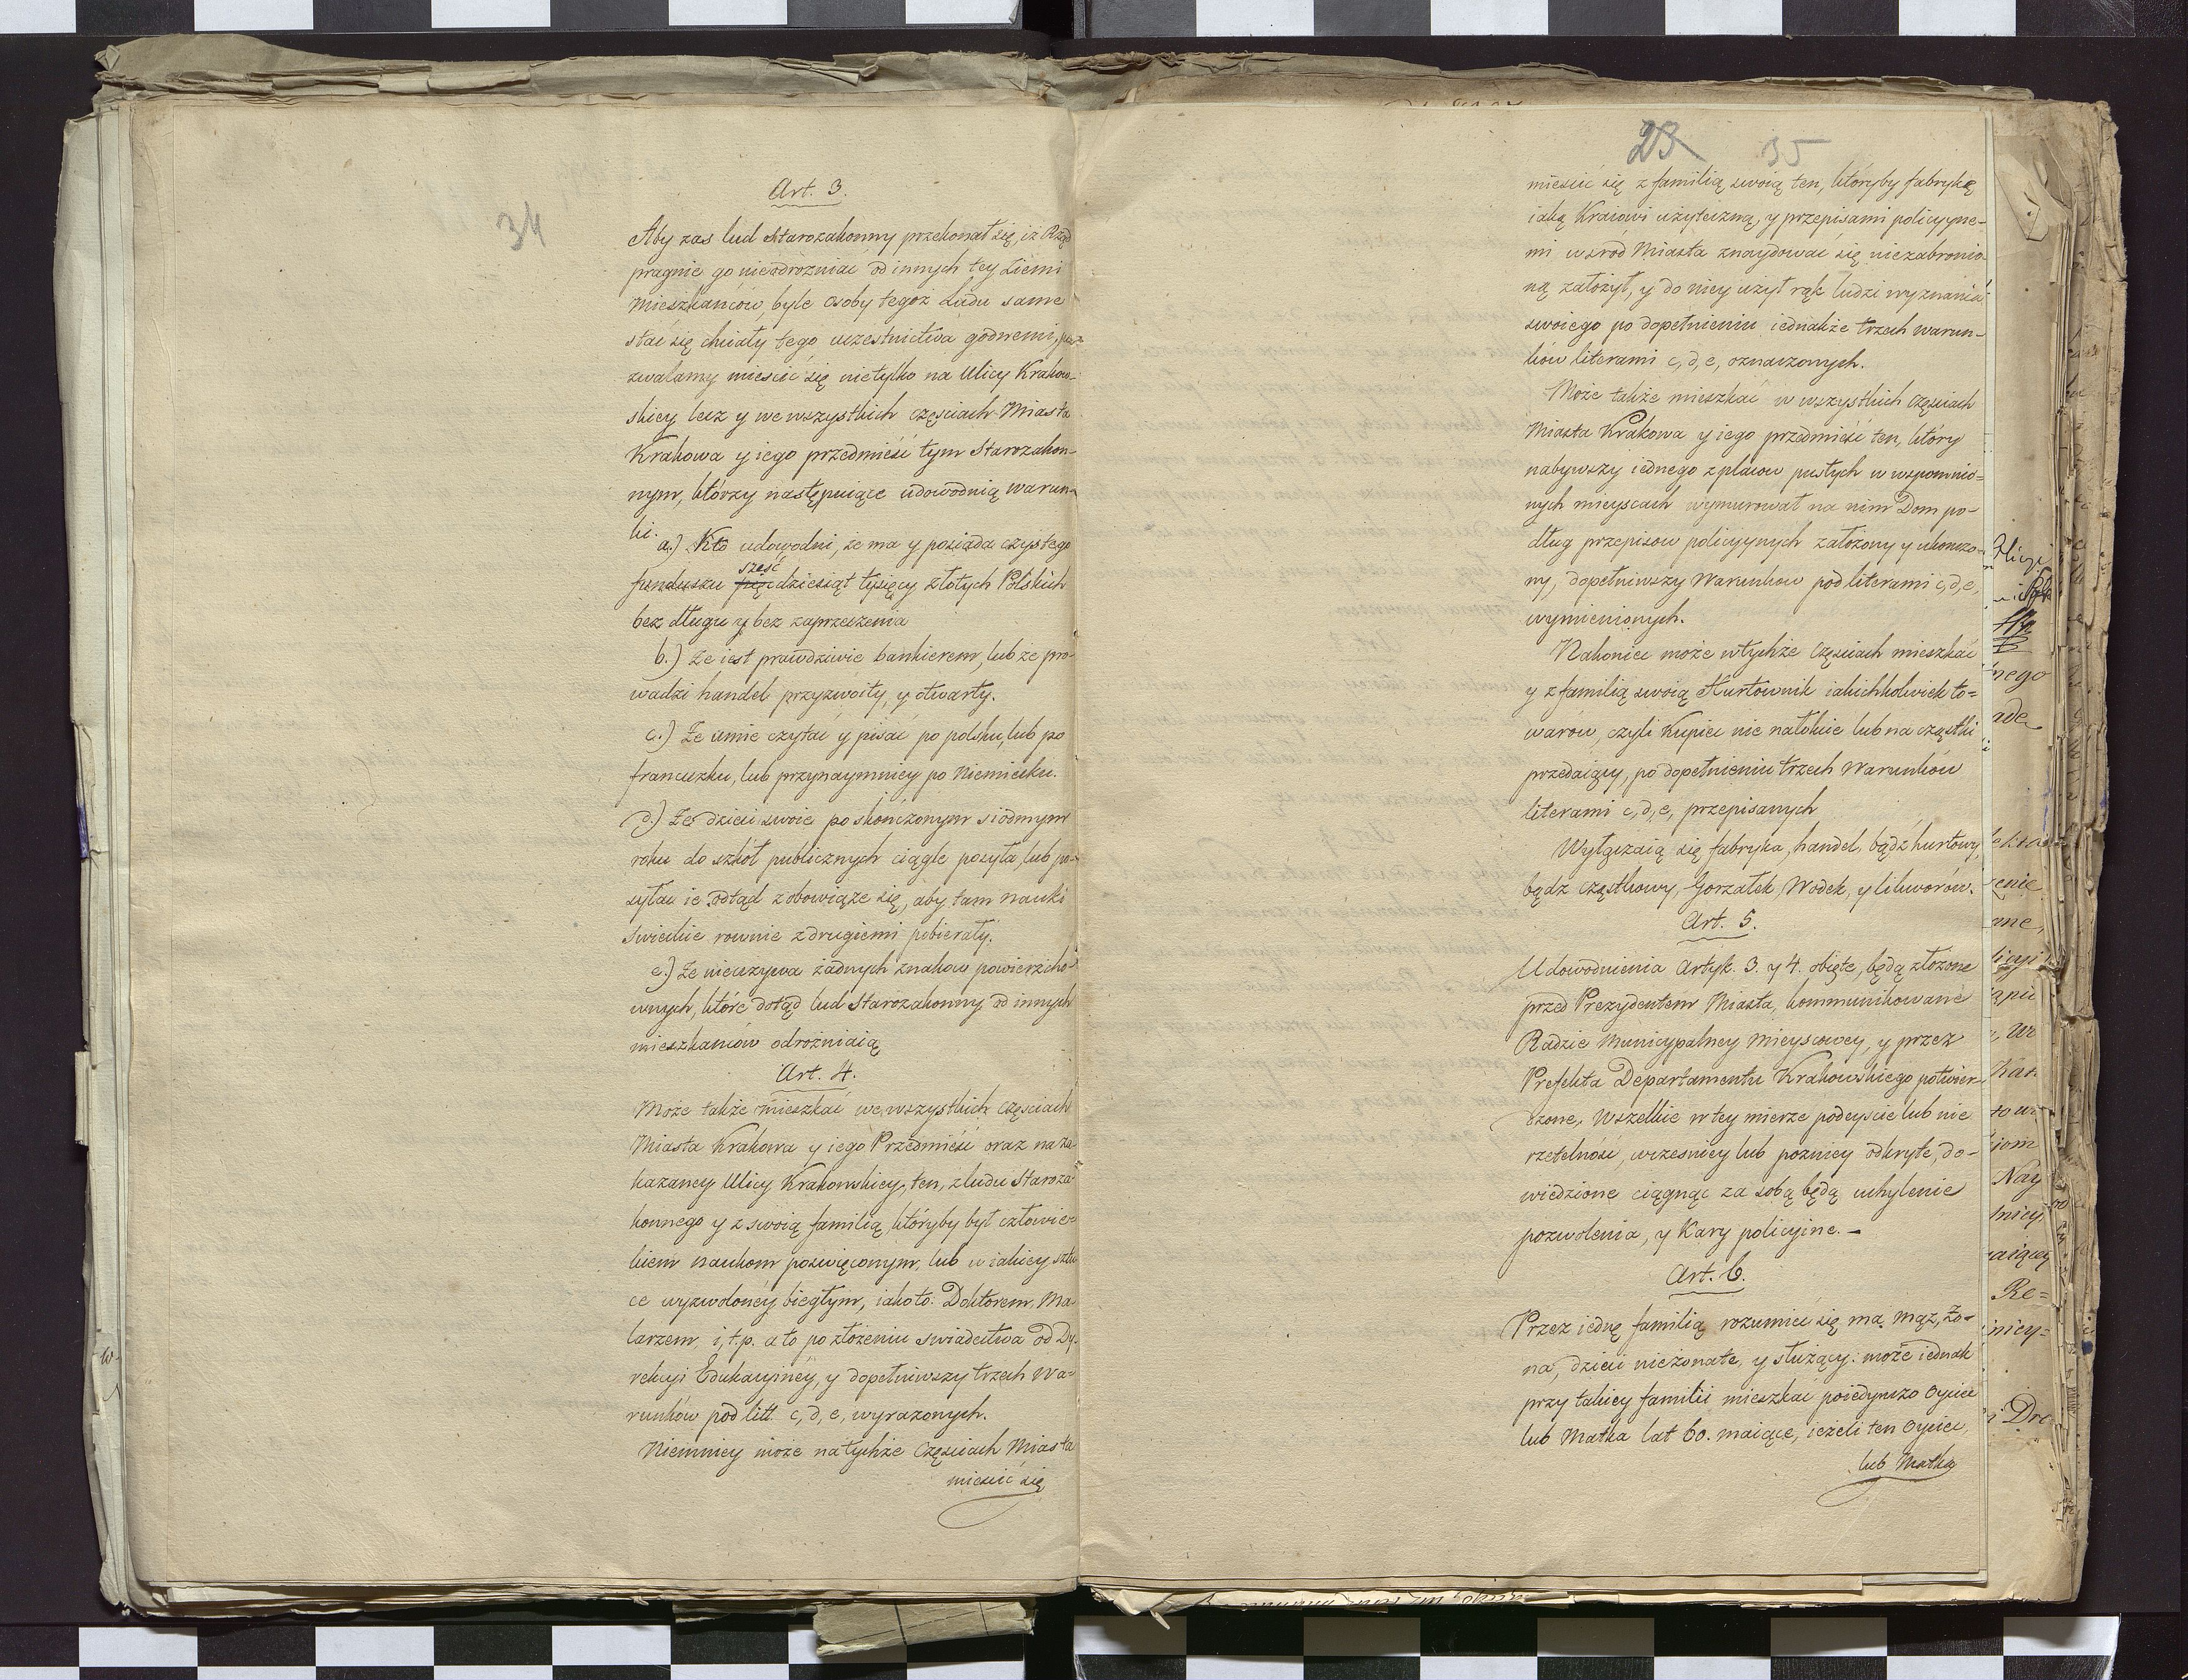 34
Art. 3.
Aby zas lud Starozakonny przekonał się, iż Rząd
pragnie go nieodrozniac od innych tey Ziemi
Mieszkancow, byle Osoby tegoż Ludu same
stac się chciały tego uczestnictwa godnemi,
zwalamy miescic się nietylko na Ulicy Krakow-
skiey lecz y we wszystkich częsciach Miasta
Krakowa y iego przedmieść tym Starozakon-
nym, którzy następuiące udowodnią warun-
ki.
a.) Kto udowodni, że ma y posiada czystego
sześć
funduszu pięcdziesiąt tysięcy złotych Polskich
bez długu y bez zaprzeczenia
b.) że iest prawdziwie bankierem, lub że pro-
wadzi handel przyzwoity, y otwarty.
c.) Że umie czytać y pisać po polsku, lub po
francuzku, lub przynaymniey po Niemiecku.
d.) Że dzieci swoie po skończonym siódmym
roku do szkół publicznych ciągle posyła, lub po-
syłac ie odtąd zobowiąże się, aby tam nauki
swieckie rownie z drugiemi pobierały.
e.) Że nieuzywa żadnych znakow powierzcho-
wnych, które dotąd lud Starozakonny od innych
mieszkancow odrozniaią
Art. 4.
Może także mieszkać we wszystkich częsciach
Miasta Krakowa y iego Przedmieść oraz na za-
kazaney Ulicy Krakowskiey, ten, z ludu Staroza-
konnego y z swoią familią, któryby był człowie-
kiem naukom poswięconym, lub w iakiey sztu-
ce wyzwoloney biegłym, iako to: Doktorem, Ma-
larzem, i, t. p. a to po złożeniu swiadectwa od Dy-
rekcyi Edukacyiney, y dopełniwszy trzech Wa-
runków pod litt. c, d, e, wyrazonych.
Niemniey może na tychże Częsciach Miasta
miescić się
23 35
miescic się z familią swoią ten, któryby fabrykę
iaką Kraiowi użyteczną, y przepisami policyyne-
mi wsrod Miasta znaydowac się niezabronio-
ną założył, y do niey użył rąk ludzi wyznania
swoiego po dopełnieniu iednakże trzech warun-
ków literami c, d, e, oznaczonych.
Może także mieszkać w wszystkich częsciach
Miasta Krakowa y iego przedmieść ten, który
nabywszy iednego z placow pustych w wspomnio-
nych mieyscach wymurował na nim Dom po-
dług przepisow policyynych założony y ukonczo-
ny, dopełniwszy Warunkow pod literami c, d, e,
wymienionych.
Nakoniec może w tychże Częsciach mieszkać
y z familią swoią Hurtownik iakichkolwiek to-
warow, czyli Kupiec nie na łokcie lub na cząstki
przedaiący, po dopełnieniu trzech Warunków
literami c, d, e, przepisanych
Wyłączaią się fabryka, handel, bądź hurtowy,
bądz cząstkowy, Gorzałek, Wodek, y likworów.
Art. 5.
Udowodnienia Artyk. 3. y 4. obięte, będą złożone
przed Prezydentem Miasta, kommunikowane
Radzie Municypalney Mieyscowey, y przez
Prefekta Departamentu Krakowskiego potwier-
dzone. Wszelkie w tey mierze podeyscie lub nie
rzetelność, wczesniey lub pozniey odkryte, do-
wiedzione ciągnąc za sobą będą uchylenie
pozwolenia, y Kary policyine. –
Art. 6.
Przez iednę familią rozumiec się ma, mąż, żo-
na, dzieci nieżonate, y służący: może iednak
przy takiey familii mieszkać poiedynczo Oyciec
lub Matka lat 60. maiące, ieżeli ten Oyciec,
lub Matka